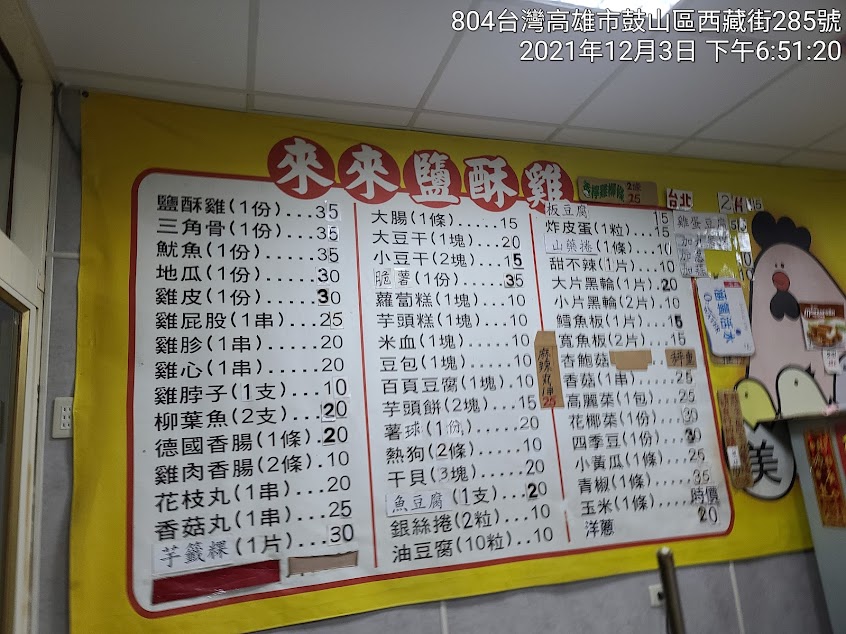 804台灣高雄市鼓山區西藏街285號
2021年12月3日 下午6:51:20
來來鹽酥雞
鹽酥雞(1份)...35
三角骨(1份)...35
魷魚(1份).....35
地瓜(1份).....30
雞皮(1份).....30
雞屁股(1串)...25
雞胗(1串).....20
雞心(1串).....20
雞脖子(1支)...10
柳葉魚(2支)...20
德國香腸(1條).20
雞肉香腸(2條).10
花枝丸(1串)...20
香菇丸(1串)...25
芋籤粿(1片)...30
大腸(1條).....15
大豆干(1塊)...20
小豆干(2塊)...15
脆薯(1份).....35
蘿蔔糕(1塊)...10
芋頭糕(1塊)...10
米血(1塊).....10
豆包(1塊).....10
百頁豆腐(1塊).10
芋頭餅(2塊)...20
薯球(1份).....20
熱狗(2條).....10
干貝(3塊).....20
魚豆腐(1支)...20
銀絲捲(2粒)...10
油豆腐(10粒)..10
板豆腐 15
炸皮蛋(1粒)...15
山藥捲(1條)...10
甜不辣(1片)...10
大片黑輪(1片).20
小片黑輪(2片).10
鱈魚板(1片)...15
寬魚板(2片)...15
杏鮑菇 秤重
香菇(1串).....25
高麗菜(1包)...25
花椰菜(1份)...30
四季豆(1份)...30
小黃瓜(1條)...25
青椒(1條).....35
玉米(1條) 時價
洋蔥 20
25
台北
雞蛋豆腐
美